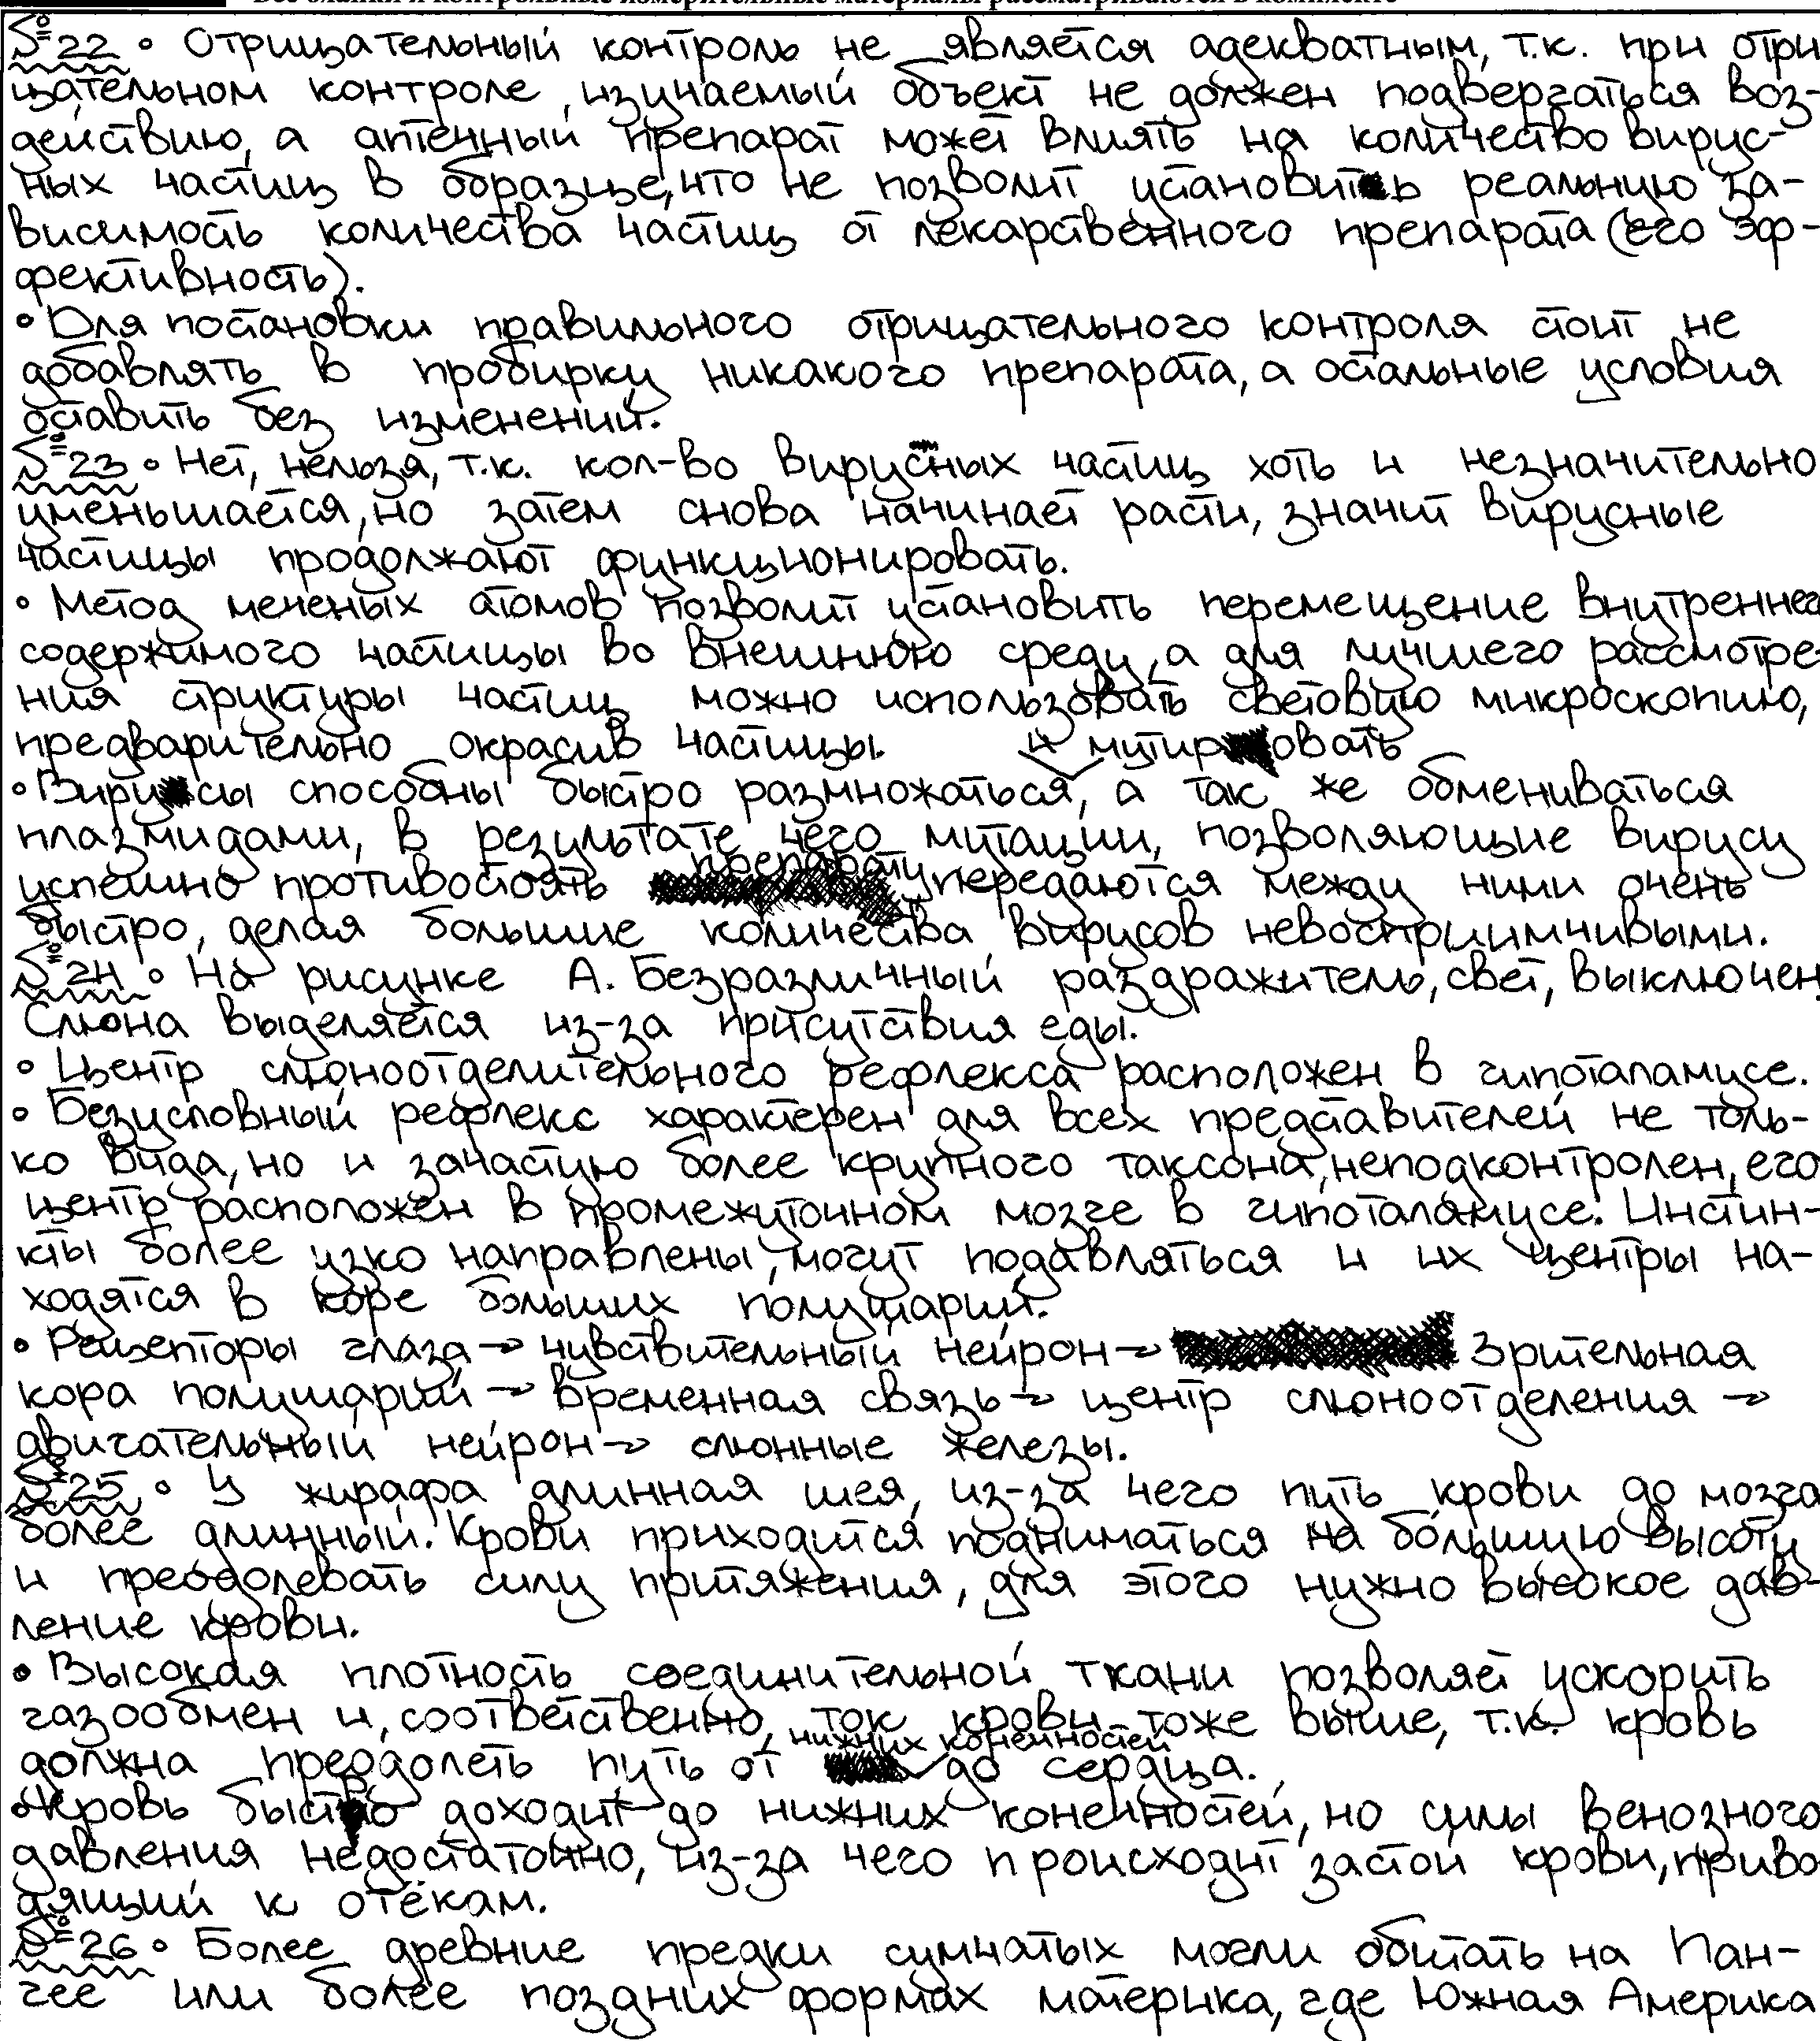 Все бланки и контрольные измерительные материалы рассматриваются в комплекте
№22 • Отрицательный контроль не является адекватным, т.к. при отри
цательном контроле, изучаемый объект не должен подвергаться воз-
действию, а аптечный препарат может влиять на количество вирус-
ных частиц в образце, что не позволит установить реальную за-
висимость количества частиц от лекарственного препарата (его эф-
фективность).
• Для постановки правильного отрицательного контроля стоит не
добавлять в пробирку никакого препарата, а остальные условия
оставить без изменений.
№23 • Нет, нельзя, т.к. кол-во вирусных частиц хоть и незначительно
уменьшается, но затем снова начинает расти, значит вирусные
частицы продолжают функционировать.
• Метод меченых атомов позволит установить перемещение внутреннего
содержимого частицы во внешнюю среду, а для лучшего рассмотре-
ния структуры частиц можно использовать световую микроскопию,
предварительно окрасив частицы.
• Вирусы способны быстро размножаться и мутировать, а так же обмениваться
плазмидами, в результате чего мутации, позволяющие вирусу
успешно противостоять препарату передаются между ними очень
быстро, делая большие количества вирусов невосприимчивыми.
№24 • На рисунке А. Безразличный раздражитель, свет, выключен.
Слюна выделяется из-за присутствия еды.
• Центр слюноотделительного рефлекса расположен в гипоталамусе.
• Безусловный рефлекс характерен для всех представителей не толь-
ко вида, но и зачастую более крупного таксона, неподконтролен, его
центр расположен в промежуточном мозге в гипоталамусе. Инстин-
кты более узко направлены, могут подавляться и их центры на-
ходятся в коре больших полушарий.
• Рецепторы глаза → чувствительный нейрон → Зрительная
кора полушарий → временная связь → центр слюноотделения →
двигательный нейрон → слюнные железы.
№25 • У жирафа длинная шея, из-за чего путь крови до мозга
более длинный. Крови приходится подниматься на бóльшую высоту
и преодолевать силу притяжения, для этого нужно высокое дав-
ление крови.
• Высокая плотность соединительной ткани позволяет ускорить
газообмен и, соответственно, ток крови тоже выше, т.к. кровь
должна преодолеть путь от нижних конечностей до сердца.
• Кровь быстро доходит до нижних конечностей, но силы венозного
давления недостаточно, из-за чего происходит застой крови, приво
дящий к отёкам.
№26 • Более древние предки сумчатых могли обитать на Пан-
гее или более поздних формах материка, где Южная Америка